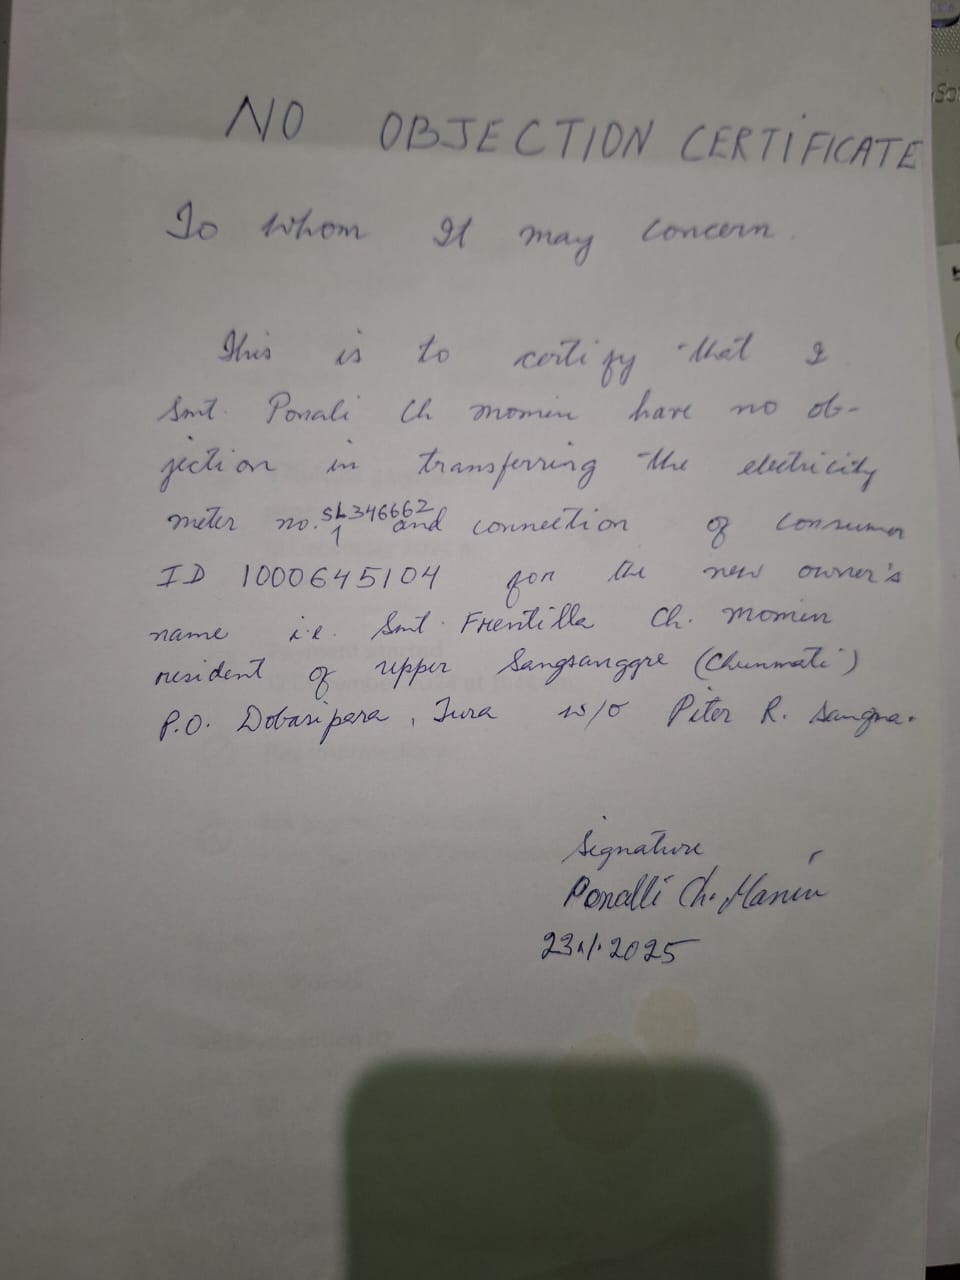 NO OBJECTION CERTIFICATE
To whom It may concern.
This is to certify that I
Smt. Ponali Ch momin have no ob-
jection in transferring the electricity
meter no. SL346662 and connection of Consumer
ID 1000645104 for the new owner's
name i.e. Smt. Frentilla Ch. momin
resident of upper Sangsanggre (Chunmati)
P.O. Dobasipara, Tura w/o Piter R. Sangma.
Signature
Ponalli Ch. Momin
23.1.2025